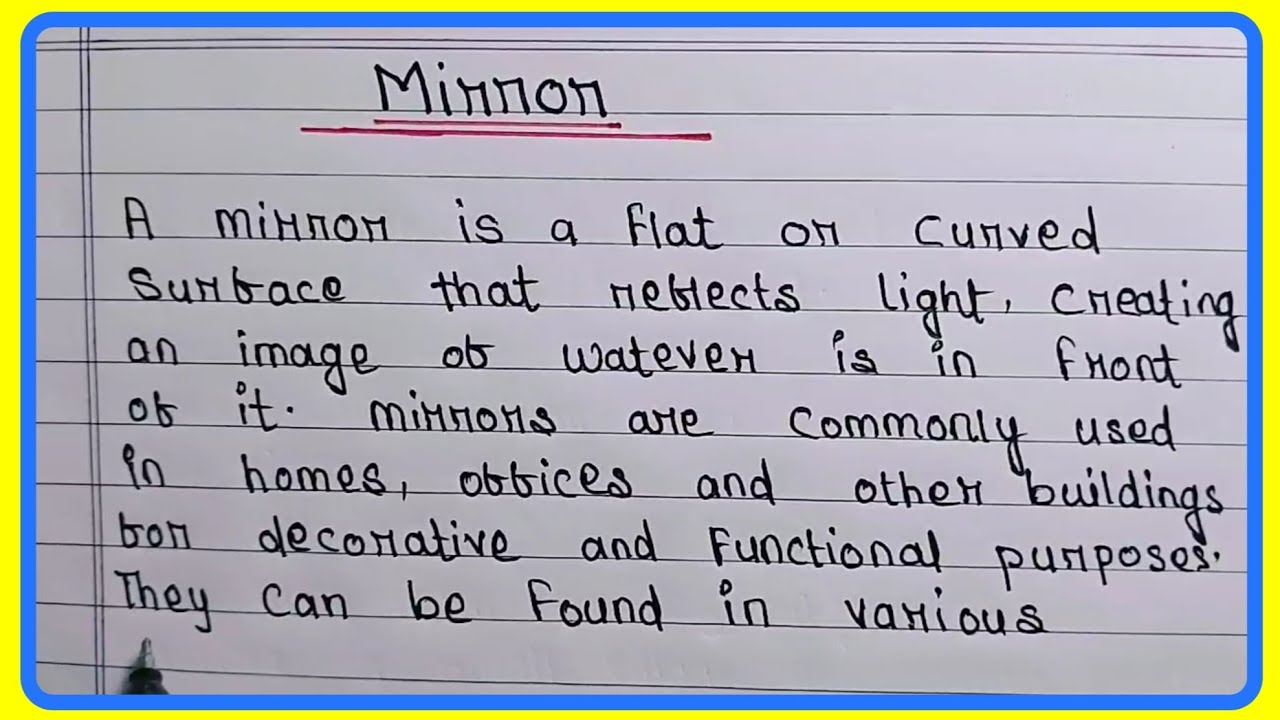 Mirror
A mirror is a flat or curved
surface that reflects light, creating
an image of watever is in front
of it. mirrors are commonly used
in homes, offices and other buildings
for decorative and functional purposes.
They can be found in various